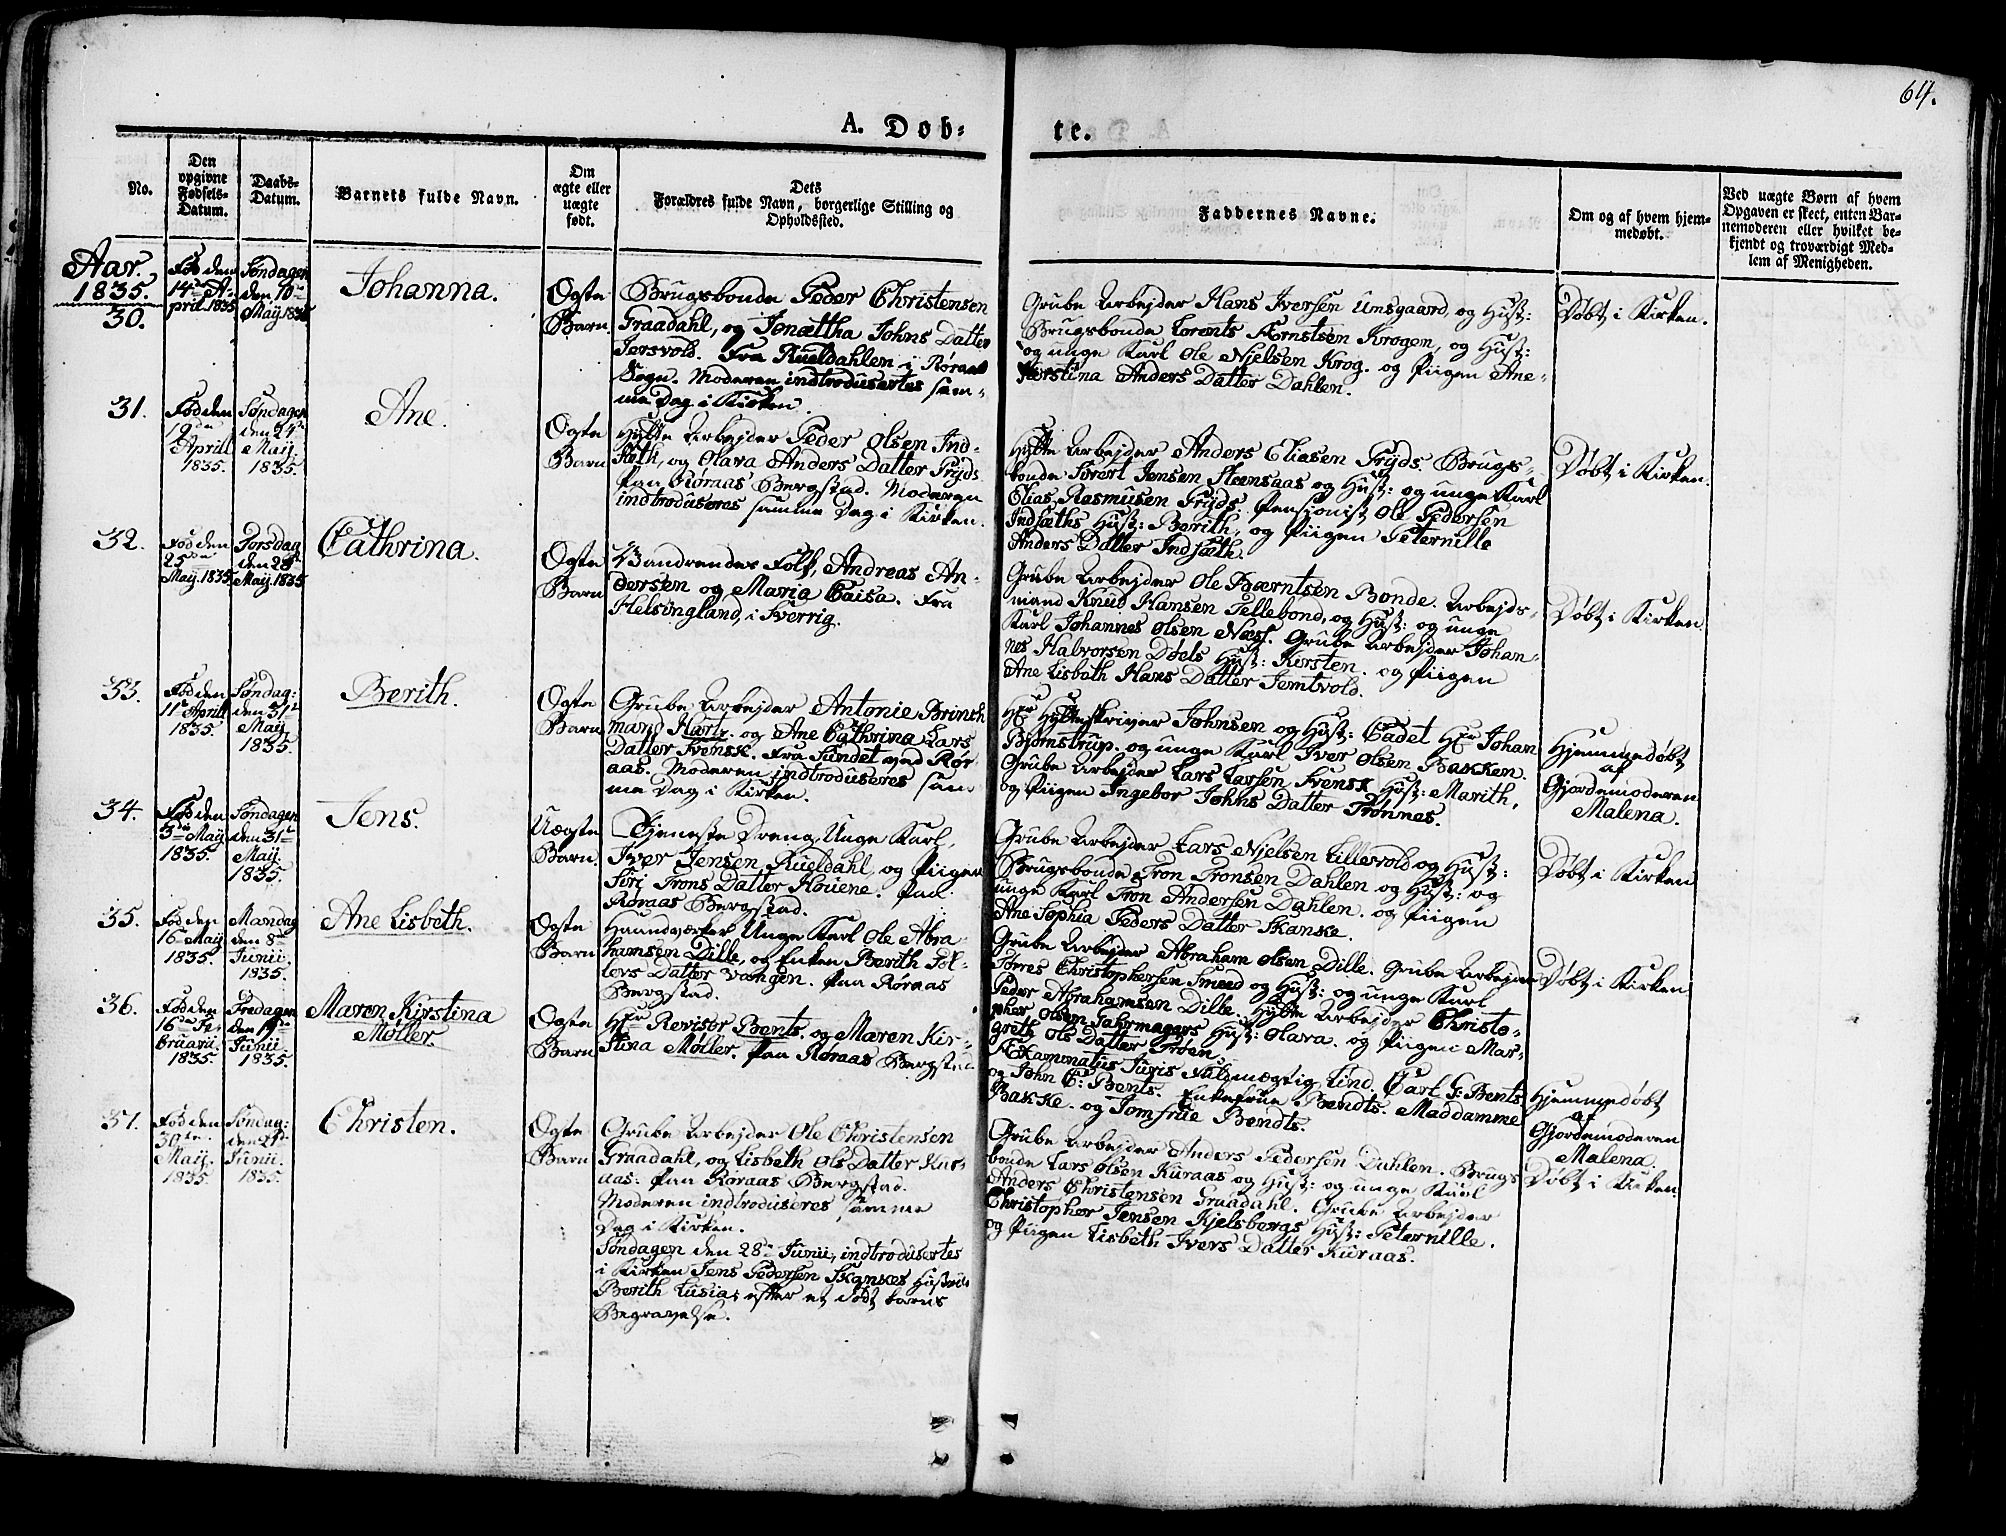 64.
A. Døb-
te.
No.
Den
opgivne
Fødsels-
Datum.
Daabs-
Datum.
Barnets fulde Navn.
Om
ægte eller
uægte
født.
Dets
Forældres fulde Navn, borgerlige Stilling og
Opholdssted.
Faddernes Navne.
Om og af hvem hjem-
medøbt.
Ved uægte Børn af hvem
Opgaven er skeet, enten Bar-
nemoderen eller hvilket be-
kjendt og troværdigt Med-
lem af Menigheden.
Aar.
1835.
30.
Fød den
14de A-
pril 1835
Søndagen
den 10de
Maij 1835
Johanna.
Ægte
Barn
Brugsbonde Peder Christensen
Graadahl, og Jonættha Johns Datter
Jersvold. Fra Rueldahlen i Røraas
Sogn. Moderen indtrodusertes sam-
me Dag i Kirken.
Grube Arbejder Hans Iversen Umsgaard, og Hust:
Brugsbonde Lorents Ærnstsen Krogen, og Hust:
og unge Karl Ole Njelsen Krog. og Piigen Ane-
Kirstina Anders Datter Dahlen.
Døbt i Kirken.
31.
Fød den
19de
Aprill
1835.
Søndagen
den 24de
Maij.
1835.
Ane.
Ægte
Barn
Hytte Arbejder Peder Olsen Ind-
sæth, og Olava Anders Datter Pryds
Paa Røraas Bergstad. Moderen
indtroduseres samme Dag i Kirken.
Hytte Arbejder Anders Eliasen Pryds. Brugs-
bonde Sivert Jensen Steensaas og Hust: og unge Karl
Elias Rasmusen Pryds. Pensionist Ole Pedersen
Indsæths Hust: Berith, og Piigen Peternille
Anders Datter Indsæth.
Døbt i Kirken.
32.
Fød den
25de
Maij 1835
Torsdag
den 28de
Maij 1835
Cathrina.
Ægte
Barn
Vandrendes Folk, Andreas An-
dersen og Maria Caisa. Fra
Helsingland, i Sverrig.
Grube Arbejder Ole Bærntsen Bonde. Arbejds-
mand Knud Hansen Tellebond, og Hust: og unge
Karl Johannes Olsen Næss. Grube Arbejder Johan-
nes Halvorsen Døels Hust: Kirsten. og Piigen
Ane Lisbeth Hans Datter Jemtvold.
Døbt i Kirken.
33.
Fød den
11te Aprill
1835.
Søndag:
den 31te
Maij.
1835.
Berith.
Ægte
Barn
Grube Arbejder Antonie Brinch
mand Hartz. og Ane Cathrina Lars
Datter Svensk. Fra Sundet ved Rør-
aas. Moderen indtroduseres sam-
me Dag i Kirken.
Hr Hytteskriver Johnsen og Hust: Cadet Hr Johan
Bjørnstrup. og unge Karl Iver Olsen Bakken.
Grube Arbejder Lars Larsen Svensk Hust: Marith,
og Piigen Ingebor Johns Datter Trønnes.
Hjemmedøbt
af
Gjordemoderen
Malena.
34.
Fød den
5te Maij
1835.
Søndagen
den 31te
Maij.
1835.
Jens.
Uægte
Barn.
Tjeneste Dreng, Unge Karl,
Iver Jensen Rueldahl, og Piigen
Siri Trons Datter Houene. Paa
Røraas Bergstad.
Grube Arbejder Lars Njelsen Lillevold og Hust:
Brugsbonde Tron Tronsen Dahlen og Hust: og
unge Karl Tron Andersen Dahlen. og Piigen
Ane Sophia Peders Datter Skanke.
Døbt i Kirken
35.
Fød den
16de Maij
1835.
Mandag
den 8de
Junii.
1835.
Ane Lisbeth.
Ægte
Barn
Haandværker Unge Karl Ole Abra-
hamsen Dille, og Enken Berith Tol-
levs Datter Vongen. Paa Røraas
Bergstad.
Grube Arbejder Abraham Olsen Dille. Grube Arbejder
Torres Christophersen Smeed og Hust: og unge Karl
Peder Abrahamsen Dille. Hytte Arbejder Christo-
pher Olsen Sahrmagers Hust: Olava. og Piigen Mar-
greth Ols Datter Troen.
Døbt i Kirken
36.
Fød den
16de Fe-
bruarii.
1835.
Fredagen
den 19de
Junii.
1835.
Maren Kirstina
Møller.
Ægte
Barn
Hr Revisor Bents. og Maren Kir-
stina Møller. Paa Røraas Bergstad
Exammatus Juris Fuldmægtig Lind, Carl G: Bents
og John C: Bents. Enkefrue Bendts. Maddamme
Bakke. og Jomfrue Bendts.
Hjemmedøbt
af
Gjordemoderen
Malena.
37.
Fød den
30te
Maij.
1835.
Søndag:
den 21de
Junii.
1835.
Christen.
Ægte
Barn
Grube Arbejder Ole Christensen
Graadahl, og Lisbeth Ols Datter Kur-
aas: Paa Røraas Bergstad.
Moderen indtroduseres samme
Dag i Kirken.
Søndagen den 28de Junii, indtrodusertes
i Kirken Jens Pedersen Skankes Hustrue
Berith Lusia, efter et dødt barns
Begravelse.
Grube Arbejder Anders Pedersen Dahlen. Brugs
bonde Lars Olsen Kuraas og Hust: og unge Karl
Anders Christensen Graadahl. Grube Arbejder
Christopher Jensen Kjelsbergs Hust: Peternille.
og Piigen Lisbeth Ivers Datter Kuraas.
Døbt i Kirken